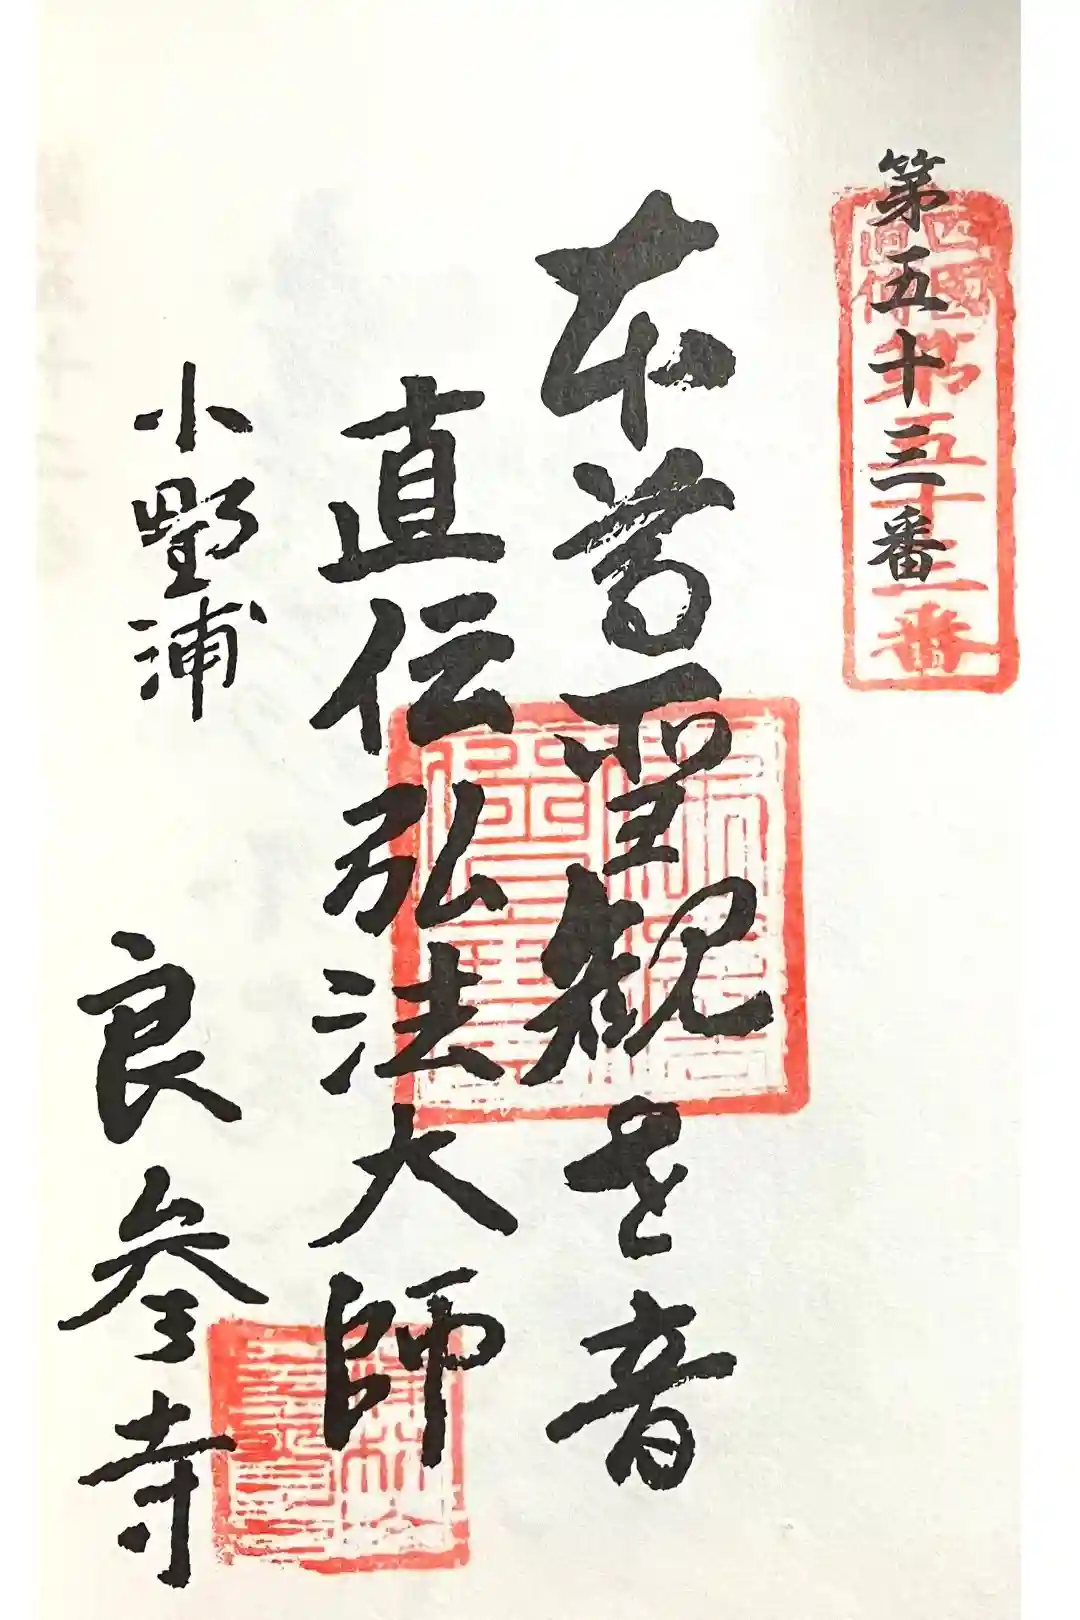 第五十三番
四國
直傳
第五十三番
本尊聖観世音
直伝弘法大師
小野浦
良参寺